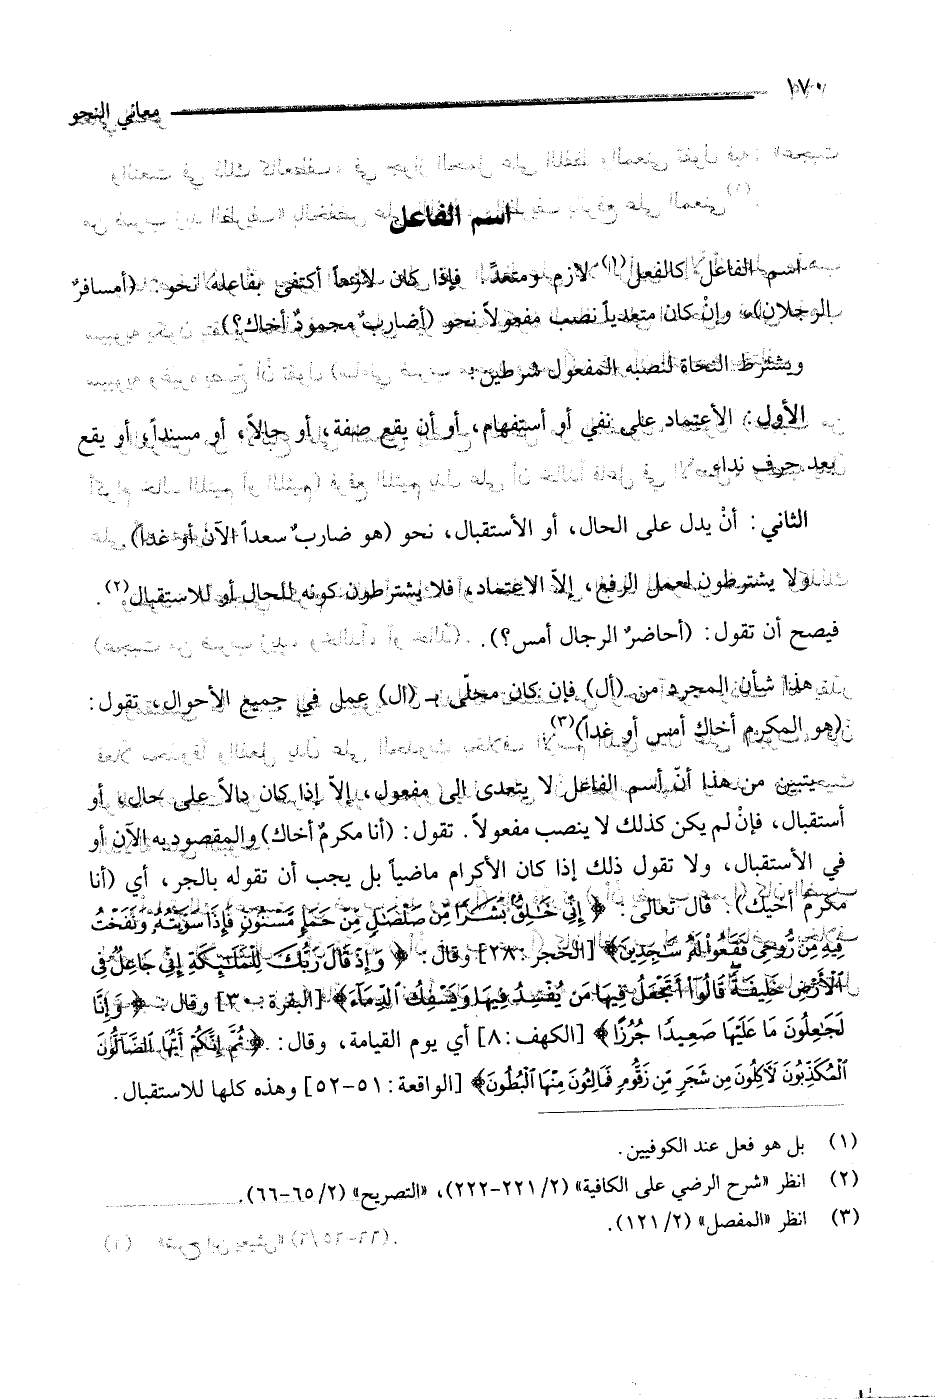 ١٧٠
معاني النحو
اسم الفاعل
اسم الفاعل كالفعل(١) لازم ومتعدّ. فإذا كان لازماً أكتفى بفاعله نحو: (أمسافرٌ
الرجلان)، وإنْ كان متعدياً نصب مفعولاً نحو (أضاربٌ محمودٌ أخاك؟)
ويشترط النحاة لنصبه المفعول شرطين:
الأول: الأعتماد على نفي أو أستفهام، أو أن يقع صفة، أو حالاً، أو مسنداً، أو يقع
بعد حرف نداء.
الثاني: أنْ يدل على الحال، أو الأستقبال، نحو (هو ضاربٌ سعداً الآن أو غداً)
ولا يشترطون لعمل الرفع، إلاّ الاعتماد، فلا يشترطون كونه للحال أو للاستقبال(٢).
فيصح أن تقول: (أحاضرٌ الرجال أمس؟).
هذا شأن المجرد من (أل) فإن كان محلّى بـ (ال) عمل في جميع الأحوال، تقول:
(هو المكرم أخاك أمس أو غداً)(٣)
يتبين من هذا أنّ أسم الفاعل لا يتعدى الى مفعول، إلاّ إذا كان دالاً على حال، أو
أستقبال، فإنْ لم يكن كذلك لا ينصب مفعولاً. تقول: (أنا مكرمٌ أخاك) والمقصود به الآن أو
في الأستقبال، ولا تقول ذلك إذا كان الأكرام ماضياً بل يجب أن تقوله بالجر، أي (أنا
مكرمُ أخيك). قال تعالى: ﴿إِنِّي خَٰلِقُۢ بَشَرًا مِّن صَلْصَٰلٍ مِّنْ حَمَإٍ مَّسْنُونٍ فَإِذَا سَوَّيْتُهُۥ وَنَفَخْتُ
فِيهِ مِن رُّوحِي فَقَعُوا۟ لَهُۥ سَٰجِدِينَ﴾ [الحجر: ٢٨] وقال: ﴿وَإِذْ قَالَ رَبُّكَ لِلْمَلَٰٓئِكَةِ إِنِّي جَاعِلٌ فِي
ٱلْأَرْضِ خَلِيفَةً قَالُوٓا۟ أَتَجْعَلُ فِيهَا مَن يُفْسِدُ فِيهَا وَيَسْفِكُ ٱلدِّمَآءَ﴾ [البقرة: ٣٠] وقال: ﴿وَإِنَّا
لَجَٰعِلُونَ مَا عَلَيْهَا صَعِيدًا جُرُزًا﴾ [الكهف: ٨] أي يوم القيامة، وقال: ﴿ثُمَّ إِنَّكُمْ أَيُّهَا ٱلضَّآلُّونَ
ٱلْمُكَذِّبُونَ لَأٓكِلُونَ مِن شَجَرٍ مِّن زَقُّومٍ فَمَالِـُٔونَ مِنْهَا ٱلْبُطُونَ﴾ [الواقعة: ٥١-٥٢] وهذه كلها للاستقبال.
(١) بل هو فعل عند الكوفيين.
(٢) انظر «شرح الرضي على الكافية» (٢/ ٢٢١-٢٢٢)، «التصريح» (٢/ ٦٥-٦٦).
(٣) انظر «المفصل» (٢/ ١٢١).